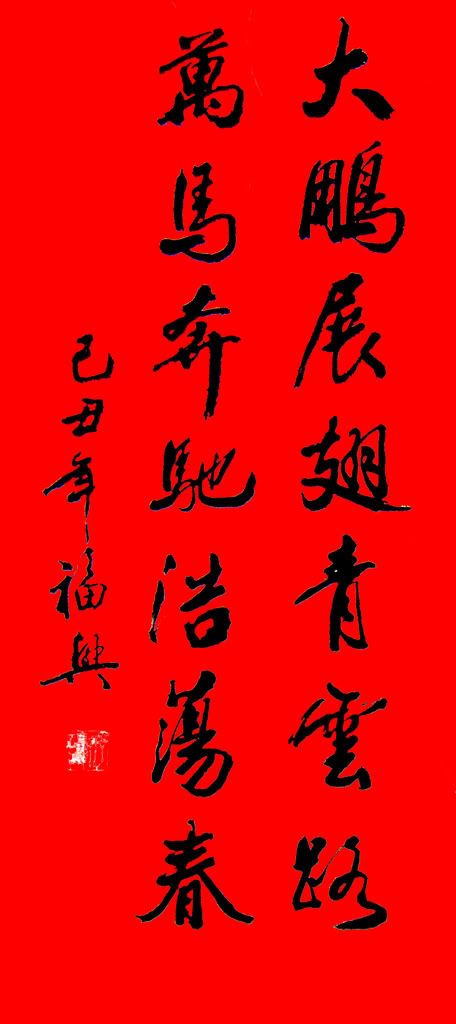 大鹏展翅青雲路
萬馬奔馳浩蕩春
己丑年福興